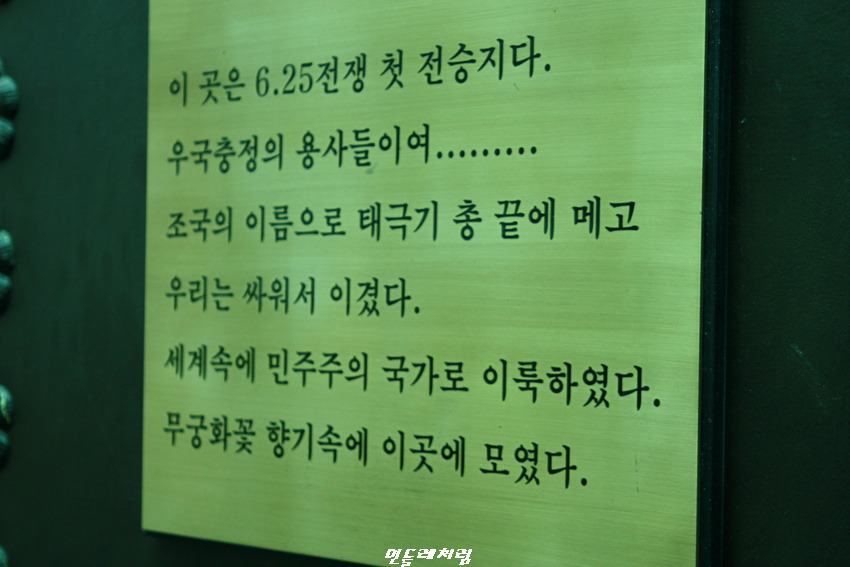 이 곳은 6.25전쟁 첫 전승지다.
우국충정의 용사들이여.........
조국의 이름으로 태극기 총 끝에 메고
우리는 싸워서 이겼다.
세계속에 민주주의 국가로 이룩하였다.
무궁화꽃 향기속에 이곳에 모였다.
민들레처럼